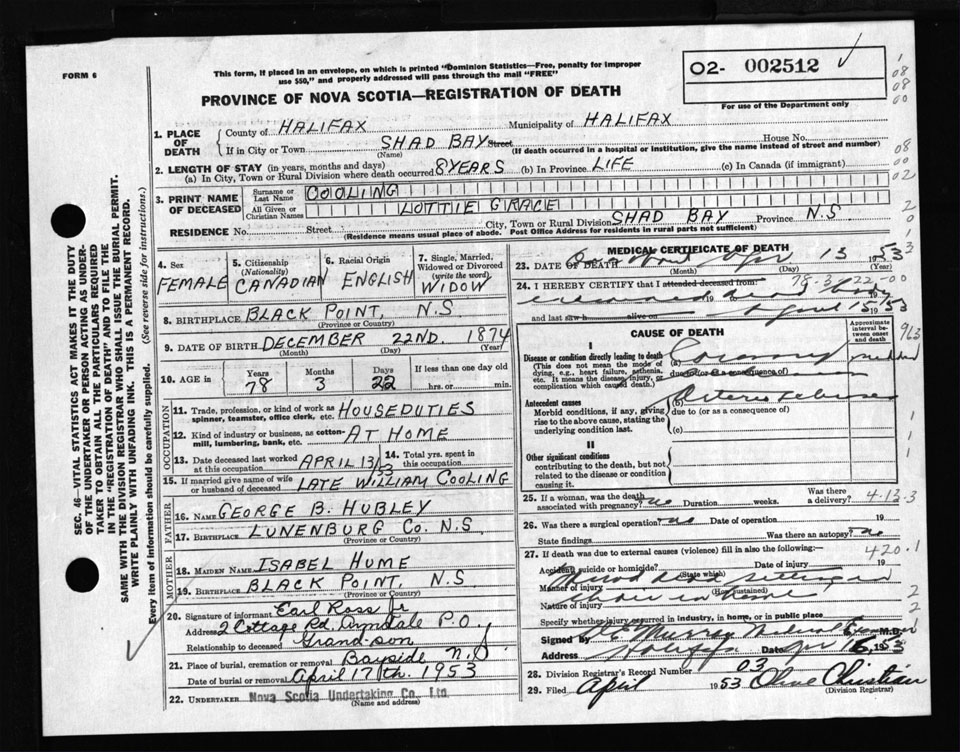 FORM 6
This form, if placed in an envelope, on which is printed "Dominion Statistics—Free, penalty for improper
use $50," and properly addressed will pass through the mail "FREE"
O2- 002512
For use of the Department only
PROVINCE OF NOVA SCOTIA—REGISTRATION OF DEATH
1. PLACE OF DEATH
County of HALIFAX Municipality of HALIFAX
If in City or Town SHAD BAY Street House No.
(Name) (If death occurred in a hospital or institution, give the name instead of street and number)
2. LENGTH OF STAY (in years, months and days)
(a) In City, Town or Rural Division where death occurred 8 YEARS (b) In Province LIFE (c) In Canada (if immigrant)
3. PRINT NAME OF DECEASED
Surname or Last Name COOLING
All Given or Christian Names LOTTIE GRACE
RESIDENCE No. Street City, Town or Rural Division SHAD BAY Province N.S
(Residence means usual place of abode. Post Office Address for residents in rural parts not sufficient)
SEC. 46—VITAL STATISTICS ACT MAKES IT THE DUTY
OF THE UNDERTAKER OR PERSON ACTING AS UNDER-
TAKER TO OBTAIN ALL THE PARTICULARS REQUIRED
IN THE "REGISTRATION OF DEATH" AND TO FILE THE
SAME WITH THE DIVISION REGISTRAR WHO SHALL ISSUE THE BURIAL PERMIT.
WRITE PLAINLY WITH UNFADING INK. THIS IS A PERMANENT RECORD.
Every item of information should be carefully supplied. (See reverse side for instructions.)
4. Sex FEMALE
5. Citizenship (Nationality) CANADIAN
6. Racial Origin ENGLISH
7. Single, Married, Widowed or Divorced (write the word) WIDOW
8. BIRTHPLACE BLACK POINT, N.S
(Province or Country)
9. DATE OF BIRTH DECEMBER 22ND. 1874
(Month) (Day) (Year)
10. AGE in Years 78 Months 3 Days 22 If less than one day old hrs. or min.
OCCUPATION
11. Trade, profession, or kind of work as spinner, teamster, office clerk, etc. HOUSEDUTIES
12. Kind of industry or business, as cotton-mill, lumbering, bank, etc. AT HOME
13. Date deceased last worked at this occupation APRIL 13/53 14. Total yrs. spent in this occupation
15. If married give name of wife or husband of deceased LATE WILLIAM COOLING
FATHER
16. NAME GEORGE B. HUBLEY
17. BIRTHPLACE LUNENBURG CO. N.S
(Province or Country)
MOTHER
18. MAIDEN NAME ISABEL HUME
19. BIRTHPLACE BLACK POINT. N.S
(Province or Country)
20. Signature of informant Earl Ross Jr
Address 2 Cottage Rd Armdale P.O.
Relationship to deceased Grand-son
21. Place of burial, cremation or removal Bayside N.S.
Date of burial or removal April 17th. 1953
22. UNDERTAKER Nova Scotia Undertaking Co., Ltd.
(Name and address)
MEDICAL CERTIFICATE OF DEATH
23. DATE OF DEATH 13 1953
(Month) (Day) (Year)
24. I HEREBY CERTIFY that I attended deceased from:
19 19
and last saw h alive on April 15/53
CAUSE OF DEATH
Approximate interval between onset and death
I
Disease or condition directly leading to death
(This does not mean the mode of dying, e.g., heart failure, asthenia, etc. It means the disease, injury, or complication which caused death.)
(a) Coronary
due to (or as a consequence of)
Antecedent causes
Morbid conditions, if any, giving rise to the above cause, stating the underlying condition last.
(b)
due to (or as a consequence of)
(c)
II
Other significant conditions
contributing to the death, but not related to the disease or condition causing it.
25. If a woman, was the death associated with pregnancy? no Duration weeks. Was there a delivery?
4-13-3
26. Was there a surgical operation? no Date of operation 19
State findings Was there an autopsy? no
27. If death was due to external causes (violence) fill in also the following:—
420.1
Accident, suicide or homicide? Date of injury 19
(State which)
Manner of injury
(How sustained)
Nature of injury
Specify whether injury occurred in industry, in home, or in public place
Signed by Murray Medical Examiner M.D.
Address Halifax Date Apr 16 1953
28. Division Registrar's Record Number 03
29. Filed April 1953 Olive Christian
(Division Registrar)